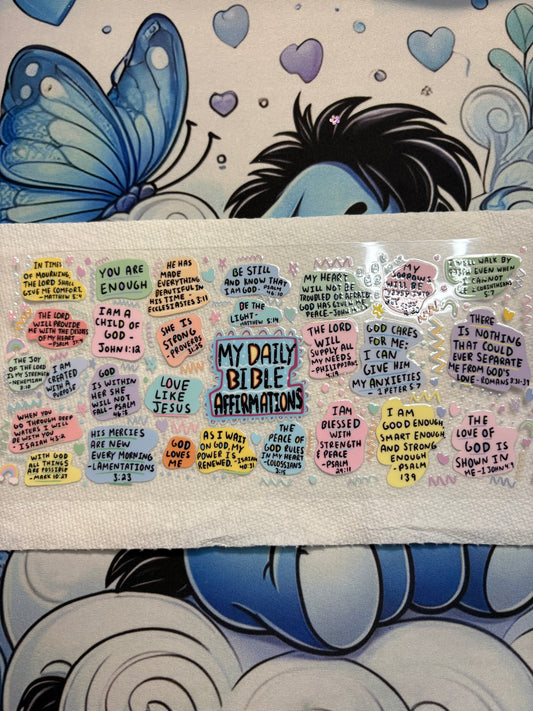 IN TIMES
OF MOURNING,
THE LORD SHALL
GIVE ME COMFORT.
- MATTHEW 5:4
YOU ARE
ENOUGH
HE HAS
MADE
EVERYTHING
BEAUTIFUL IN
HIS TIME -
ECCLESIASTES 3:11
BE STILL
AND KNOW THAT
I AM GOD. - PSALM
46:10
MY HEART
WILL NOT BE
TROUBLED OR AFRAID
GOD HAS GIVEN ME
PEACE - JOHN
MY
SORROWS
WILL BE
I WILL WALK BY
FAITH EVEN WHEN
I CANNOT
SEE 2 CORINTHIANS
5:7
THE LORD
WILL PROVIDE
ME WITH THE DESIRES
OF MY HEART
- PSALM
I AM A
CHILD OF
GOD -
JOHN 1:12
SHE IS
STRONG
PROVERBS
31:25
BE THE
LIGHT -
MATTHEW 5:14
MY DAILY
BIBLE
AFFIRMATIONS
THE LORD
WILL
SUPPLY ALL
MY NEEDS
- PHILIPPIANS
4:19
GOD CARES
FOR ME;
I CAN
GIVE HIM
MY ANXIETIES
- 1 PETER 5:7
THERE
IS NOTHING
THAT COULD
EVER SEPARATE
ME FROM GOD'S
LOVE - ROMANS 8:38-39
THE JOY
OF THE LORD
IS MY STRENGTH
- NEHEMIAH
8:10
I AM
CREATED
WITH A
PURPOSE
GOD
IS WITHIN
HER SHE
WILL NOT
FALL - PSALM
46:5
LOVE
LIKE
JESUS
WHEN YOU
GO THROUGH DEEP
WATERS I WILL
BE WITH YOU
- ISAIAH 43:2
HIS MERCIES
ARE NEW
EVERY MORNING
- LAMENTATIONS
3:23
GOD
LOVES
ME
AS I WAIT
ON GOD, MY
POWER IS
RENEWED. - ISAIAH
40:31
THE
PEACE OF
GOD RULES
IN MY HEART
- COLOSSIANS
3:15
I AM
BLESSED
WITH
STRENGTH
& PEACE
- PSALM
29:11
I AM
GOOD ENOUGH,
SMART ENOUGH
AND STRONG
ENOUGH
- PSALM
139
THE
LOVE OF
GOD IS
SHOWN IN
ME - 1 JOHN 4:9
WITH GOD
ALL THINGS
ARE POSSIBLE
- MARK 10:27